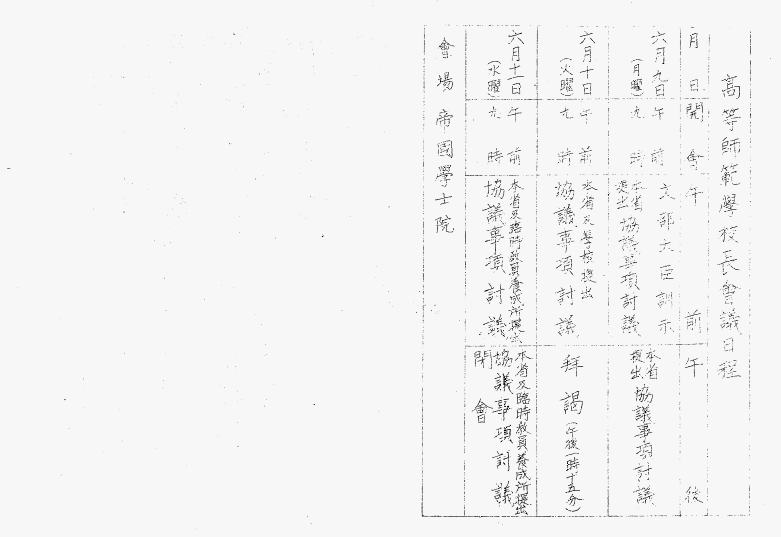 高等師範學校長會議日程
月日
開會
午前
午後
六月九日
(月曜)
午前
九時
文部大臣訓示
本省提出
協議事項討議
本省提出
協議事項討議
六月十日
(火曜)
午前
九時
本省及學校提出
協議事項討議
拜謁(午後一時十五分)
六月十一日
(水曜)
午前
九時
本省及臨時教員養成所提出
協議事項討議
本省及臨時教員養成所提出
協議事項討議
閉會
會場 帝國學士院